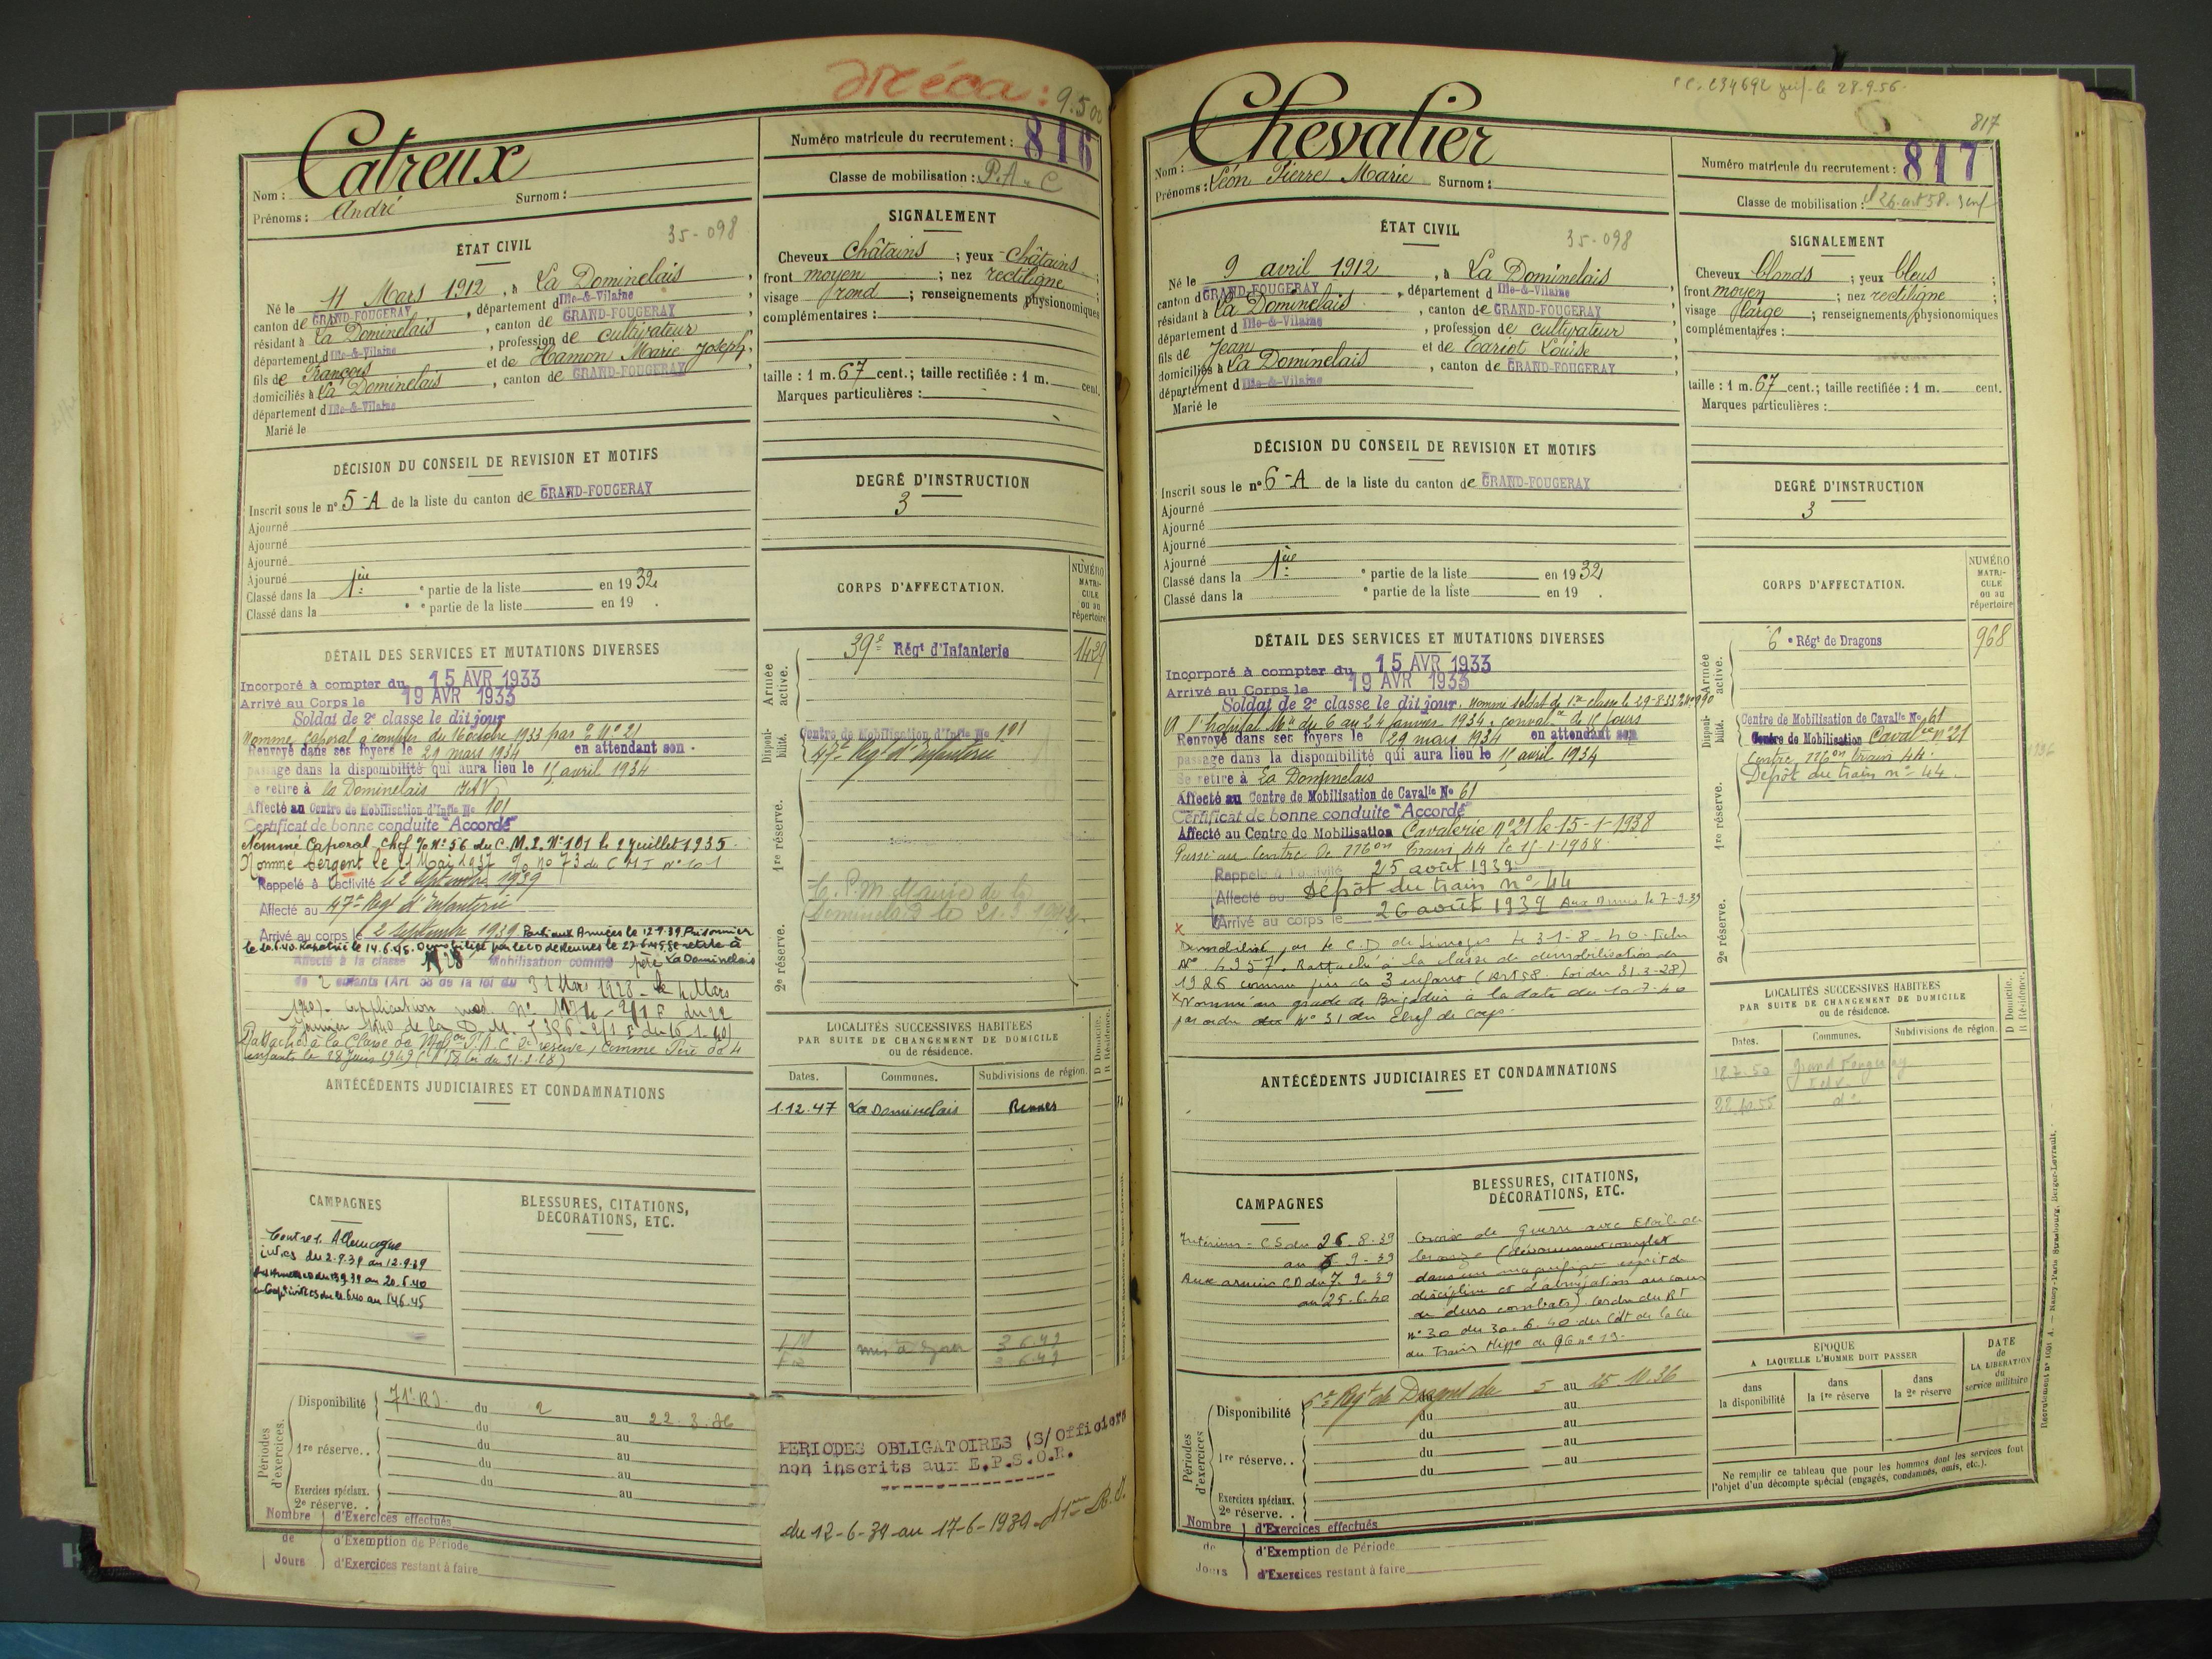 9.500
Catreux
Nom :
Prénoms : André Surnom :
Numéro matricule du recrutement : 816
Classe de mobilisation : P.A. C
35-098
ÉTAT CIVIL
Né le 11 Mars 1912, à La Dominelais,
canton de GRAND-FOUGERAY, département d Ille-&-Vilaine,
résidant à La Dominelais, canton de GRAND-FOUGERAY,
département d Ille-&-Vilaine, profession de cultivateur,
fils de François et de Hamon Marie Joseph,
domiciliés à La Dominelais, canton de GRAND-FOUGERAY,
département d Ille-&-Vilaine
Marié le
SIGNALEMENT
Cheveux châtains ; yeux châtains ;
front moyen ; nez rectiligne ;
visage rond ; renseignements physionomiques
complémentaires :
taille : 1 m. 67 cent.; taille rectifiée : 1 m. cent.
Marques particulières :
DÉCISION DU CONSEIL DE REVISION ET MOTIFS
Inscrit sous le n° 5-A de la liste du canton de GRAND-FOUGERAY
Ajourné
Ajourné
Ajourné
Ajourné
Classé dans la 1ère e partie de la liste en 1932
Classé dans la e partie de la liste en 19 .
DEGRÉ D'INSTRUCTION
3
CORPS D'AFFECTATION.
NUMÉRO
MATRI-
CULE
ou au
répertoire
Armée active.
39e Régt d'Infanterie 1429
Disponibilité.
Centre de Mobilisation d'Infie No 101
47e Regt d'Infanterie
1re réserve.
2e réserve.
DÉTAIL DES SERVICES ET MUTATIONS DIVERSES
Incorporé à compter du 15 AVR 1933
Arrivé au Corps le 19 AVR 1933
Soldat de 2e classe le dit jour
Nommé caporal à compter du 16 octobre 1933 N° 21
Renvoyé dans ses foyers le 29 mars 1934 en attendant son
passage dans la disponibilité qui aura lieu le 15 avril 1934
Se retire à la Dominelais
Affecté au Centre de Mobilisation d'Infie No 101
Certificat de bonne conduite "Accordé"
Nommé Caporal-chef N° 56 du C.M.I. N° 101 le 2 juillet 1935.
Nommé Sergent le 21 Mai 1937 no 73 du C M I n° 101
Rappelé à l'activité le 2 septembre 1939
Affecté au 47e Regt d'Infanterie
Arrivé au corps le 2 Septembre 1939 Parti aux Armées le 12.9.39 Prisonnier
le 20.6.40. Rapatrié le 14.6.45. Démobilisé par le CD de Rennes le 27.6.45 Se retire à
La Dominelais
Affecté à la classe Mobilisation comme père
de 2 enfants (Art 58 de la loi du 31 Mars 1928
Application
Janvier 1940 de la D. M.
Rattaché à la Classe de P.A.C 2e réserve, comme Père de 4
enfants le 28 Juin 1949
ANTÉCÉDENTS JUDICIAIRES ET CONDAMNATIONS
LOCALITÉS SUCCESSIVES HABITÉES
PAR SUITE DE CHANGEMENT DE DOMICILE
ou de résidence.
D Domicile.
R Résidence.
Dates. Communes. Subdivisions de région.
1.12.47 La Dominelais Rennes
CAMPAGNES
Contre l'Allemagne
int. cs du 2.9.39 au 12.9.39
aux Armées CD du 13.9.39 au 20.6.40
en captivité CS du 21.6.40 au 14.6.45
BLESSURES, CITATIONS,
DÉCORATIONS, ETC.
mis à jour
Périodes d'exercices.
Disponibilité 71e R.I. du 2 au 22.3.36
du au
1re réserve.. du au
du au
du au
Exercices spéciaux.
2e réserve. .
Nombre de Jours
d'Exercices effectués
d'Exemption de Période
d'Exercices restant à faire
PERIODES OBLIGATOIRES (S/Officiers
non inscrits aux E.P.S.O.R.
du 12-6-39 au 17-6-1939
817
Chevalier
Nom :
Prénoms : Léon Pierre Marie Surnom :
Numéro matricule du recrutement : 817
Classe de mobilisation :
35-098
ÉTAT CIVIL
Né le 9 avril 1912, à La Dominelais
canton d GRAND-FOUGERAY, département d Ille-&-Vilaine,
résidant à La Dominelais, canton de GRAND-FOUGERAY,
département d Ille-&-Vilaine, profession de cultivateur,
fils de Jean et de Tariot Louise
domiciliés à La Dominelais, canton de GRAND-FOUGERAY,
département d Ille-&-Vilaine
Marié le
SIGNALEMENT
Cheveux blonds ; yeux bleus ;
front moyen ; nez rectiligne ;
visage large ; renseignements physionomiques
complémentaires :
taille : 1 m. 67 cent.; taille rectifiée : 1 m. cent.
Marques particulières :
DÉCISION DU CONSEIL DE REVISION ET MOTIFS
Inscrit sous le n° 6-A de la liste du canton de GRAND-FOUGERAY
Ajourné
Ajourné
Ajourné
Ajourné
Classé dans la 1ère e partie de la liste en 1932
Classé dans la e partie de la liste en 19 .
DEGRÉ D'INSTRUCTION
3
CORPS D'AFFECTATION.
NUMÉRO
MATRI-
CULE
ou au
répertoire
Armée active.
6e Régt de Dragons 968
Disponibilité.
Centre de Mobilisation de Cavalie No 61
Centre de Mobilisation Cavalie n° 21
Centre train 44
Dépôt du train n° 44
1re réserve.
2e réserve.
DÉTAIL DES SERVICES ET MUTATIONS DIVERSES
Incorporé à compter du 15 AVR 1933
Arrivé au Corps le 19 AVR 1933
Soldat de 2e classe le dit jour. Nommé soldat de 1re classe le 29-8-33
A l'hopital du 6 au 24 janvier 1934.
Renvoyé dans ses foyers le 29 mars 1934 en attendant son
passage dans la disponibilité qui aura lieu le 15 avril 1934
Se retire à La Dominelais
Affecté au Centre de Mobilisation de Cavalie No 61
Certificat de bonne conduite "Accordé"
Affecté au Centre de Mobilisation Cavalerie n° 21 le 15-1-1938
Passé au Centre de Train 44
Rappelé à l'activité 25 août 1939
Affecté au Dépôt du train n° 44
Arrivé au corps le 26 août 1939 Aux Armées le 7-9-39
Démobilisé par le C.D de Limoges le 31-8-40. Fiche
N° 4957. Rattaché à la classe de démobilisation de
1926 comme père de 3 enfants (Art 58. Loi du 31.3-28)
x Nommé au grade de Brigadier à la date du
par ordre N° 31 du Chef de corps.
ANTÉCÉDENTS JUDICIAIRES ET CONDAMNATIONS
LOCALITÉS SUCCESSIVES HABITÉES
PAR SUITE DE CHANGEMENT DE DOMICILE
ou de résidence.
D Domicile.
R Résidence.
Dates. Communes. Subdivisions de région.
Grand Fougeray
CAMPAGNES
Intérieur - CS du 26-8-39
au 6-9-39
Aux armées CD du 7-9-39
au 25-6-40
BLESSURES, CITATIONS,
DÉCORATIONS, ETC.
Croix de Guerre avec Etoile de
bronze (dévouement complet
dans un magnifique esprit de
discipline et d'abnégation au cours
de durs combats).
n° 30 du 30-6-40 du Cdt de la Cie
du Train Hippo
Périodes d'exercices
Disponibilité 6e Regt de Dragons du 5 au 25.10.36
du au
du au
1re réserve.. du au
du au
Exercices spéciaux.
2e réserve. .
Nombre de Jours
d'Exercices effectués
d'Exemption de Période
d'Exercices restant à faire
EPOQUE
A LAQUELLE L'HOMME DOIT PASSER
dans la disponibilité
dans la 1re réserve
dans la 2e réserve
DATE
de
LA LIBÉRATION
du
service militaire
Ne remplir ce tableau que pour les hommes dont les services font
l'objet d'un décompte spécial (engagés, condamnés, omis, etc.).